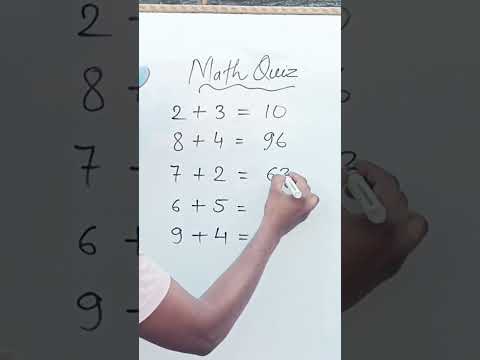 Math Quiz
2 + 3 = 10
8 + 4 = 96
7 + 2 = 63
6 + 5 =
9 + 4 =